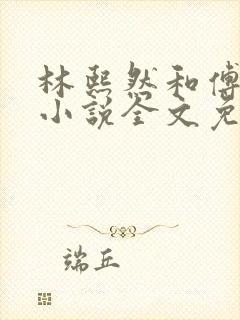 林熙然和傅
小说全文免
端丘